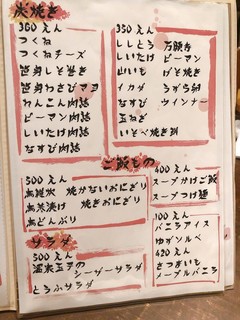 炭焼き
360えん
つくね
つくねチーズ
笹身しそ巻き
笹身わさびマヨ
れんこん肉詰
ピーマン肉詰
しいたけ肉詰
なすび肉詰
350えん
ししとう 万願寺
しいたけ ピーマン
山いも げそ焼き
イカダ うずら卵
なすび ウインナー
玉ねぎ
いそべ焼き
ご飯もの
500えん
鳥雑炊 焼かないおにぎり
鳥茶漬け 焼きおにぎり
鳥どんぶり
400えん
スープかけご飯
スープつけ麺
サラダ
500えん
温泉玉子の
シーザーサラダ
とうふサラダ
100えん
バニラアイス
ゆずソルベ
420えん
さつまいも
メープルバニラ